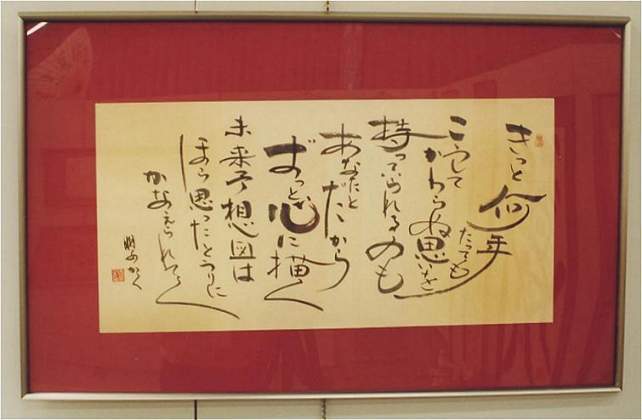 きっと何年
たっても
こうして
かわらぬ思いを
持っていられるのも
あなたと
だから
ずっと心に描く
未来予想図は
ほら思ったとうりに
かなえられてく